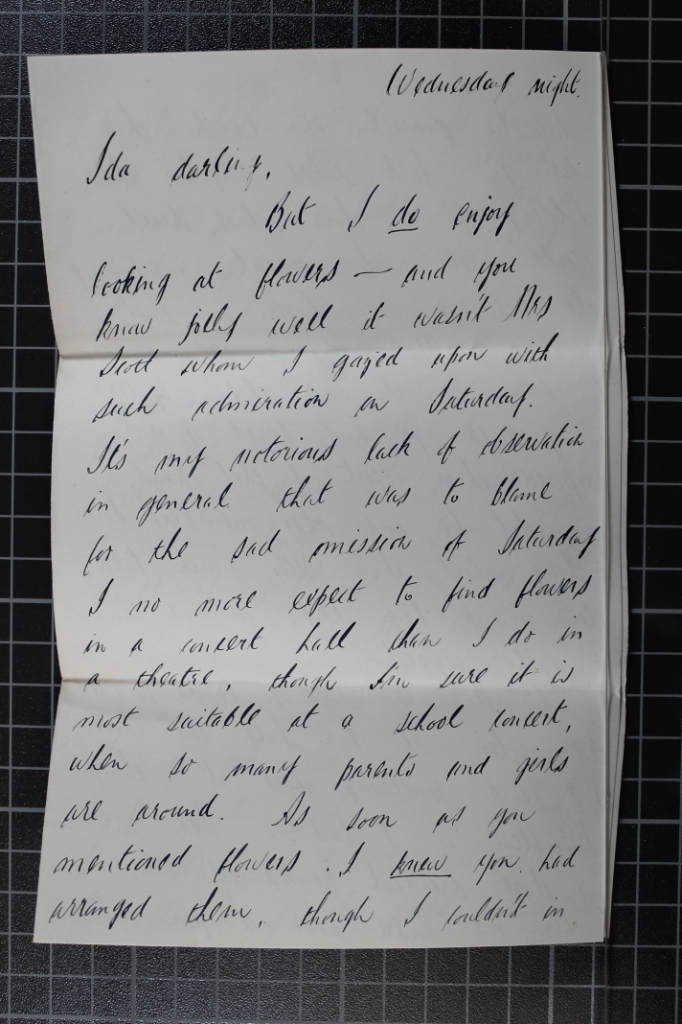 Wednesday night.
Ida darling,
But I do enjoy
looking at flowers — and you
know jolly well it wasn't Mrs
Scott whom I gazed upon with
such admiration on Saturday.
It's my notorious lack of observation
in general that was to blame
for the sad omission of Saturday
I no more expect to find flowers
in a concert hall than I do in
a theatre, though I'm sure it is
most suitable at a school concert,
when so many parents and girls
are around. As soon as you
mentioned flowers, I knew you had
arranged them, though I couldn't in